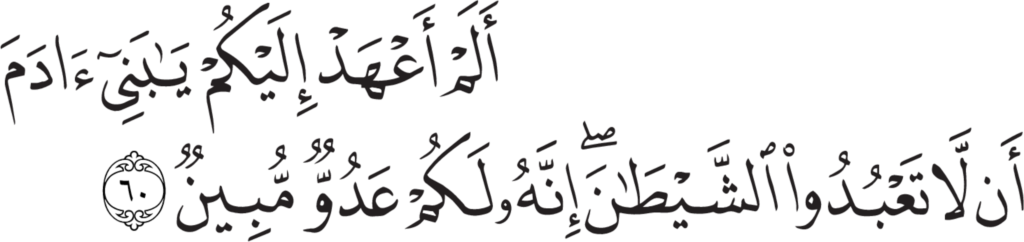 أَلَمْ أَعْهَدْ إِلَيْكُمْ يَٰبَنِىٓ ءَادَمَ
أَن لَّا تَعْبُدُوا۟ ٱلشَّيْطَٰنَ ۖ إِنَّهُۥ لَكُمْ عَدُوٌّ مُّبِينٌ ٦٠